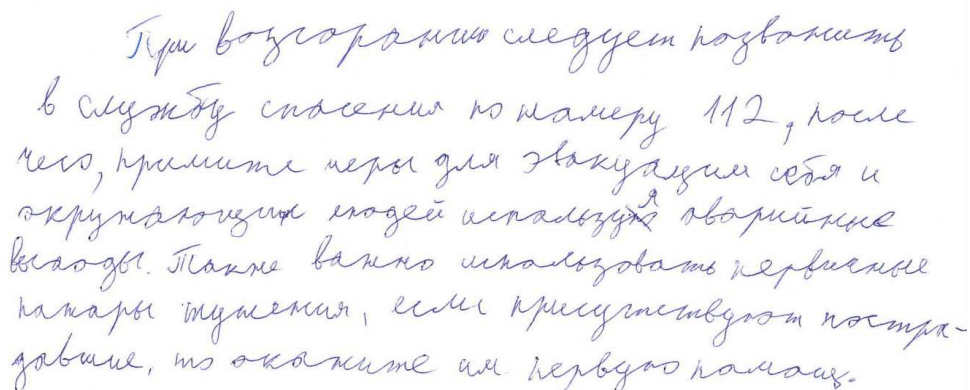 При возгорании следует позвонить
в службу спасения по номеру 112, после
чего, примите меры для эвакуации себя и
окружающих людей используя аварийные
выходы. Также важно использовать первичные
пожары тушения, если присутствуют постра-
давшие, то окажите им первую помощь.